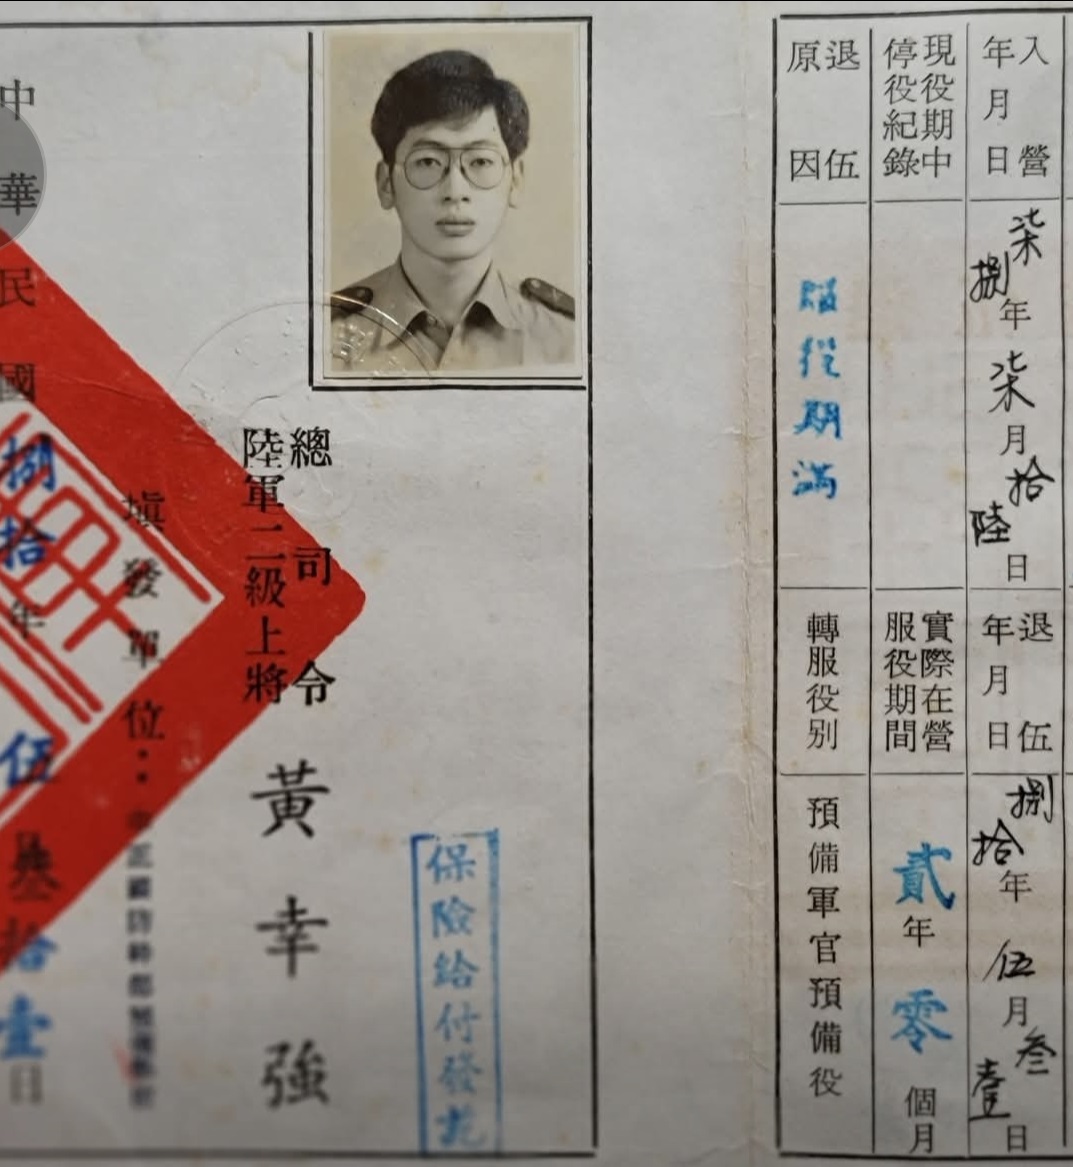 入營
年月日
柒捌年柒月拾陸日
退伍
年月日
捌拾年伍月叁壹日
現役期中
停役紀錄
實際在營
服役期間
貳年零個月
退伍
原因
服役期滿
轉服役別
預備軍官預備役
保險給付發訖
總司令
陸軍二級上將
黃幸強
填發單位：
中華民國捌拾年伍月叁拾壹日